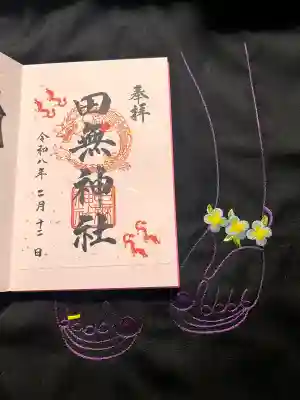 奉拝
田無神社
令和八年二月十二日